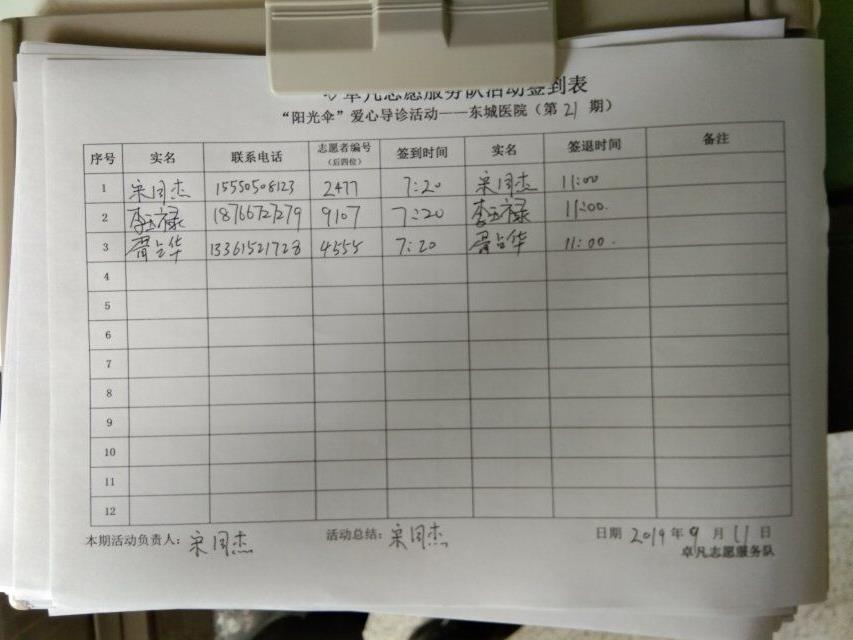 卓凡志愿服务队活动签到表
“阳光伞”爱心导诊活动——东城医院（第 21 期）
序号 实名 联系电话 志愿者编号（后四位） 签到时间 实名 签退时间 备注
1 宋同杰 15550508123 2477 7:20 宋同杰 11:00
2 李玉禄 18766727279 9107 7:20 李玉禄 11:00
3 占华 13361521728 4555 7:20 占华 11:00
4
5
6
7
8
9
10
11
12
本期活动负责人：宋同杰 活动总结：宋同杰 日期 2019 年 9 月 11 日
卓凡志愿服务队